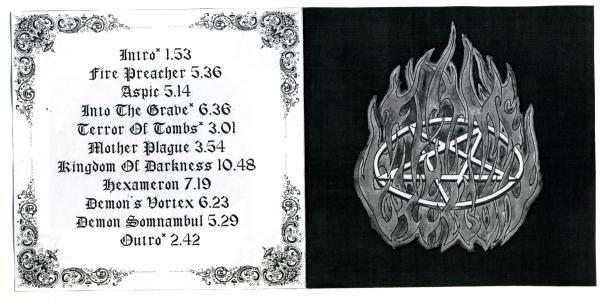 Intro* 1.53
Fire Preacher 5.36
Aspic 5.14
Into The Grave* 6.36
Terror Of Tombs* 3.01
Mother Plague 3.54
Kingdom Of Darkness 10.48
Hexameron 7.19
Demon's Vortex 6.23
Demon Somnambul 5.29
Outro* 2.42